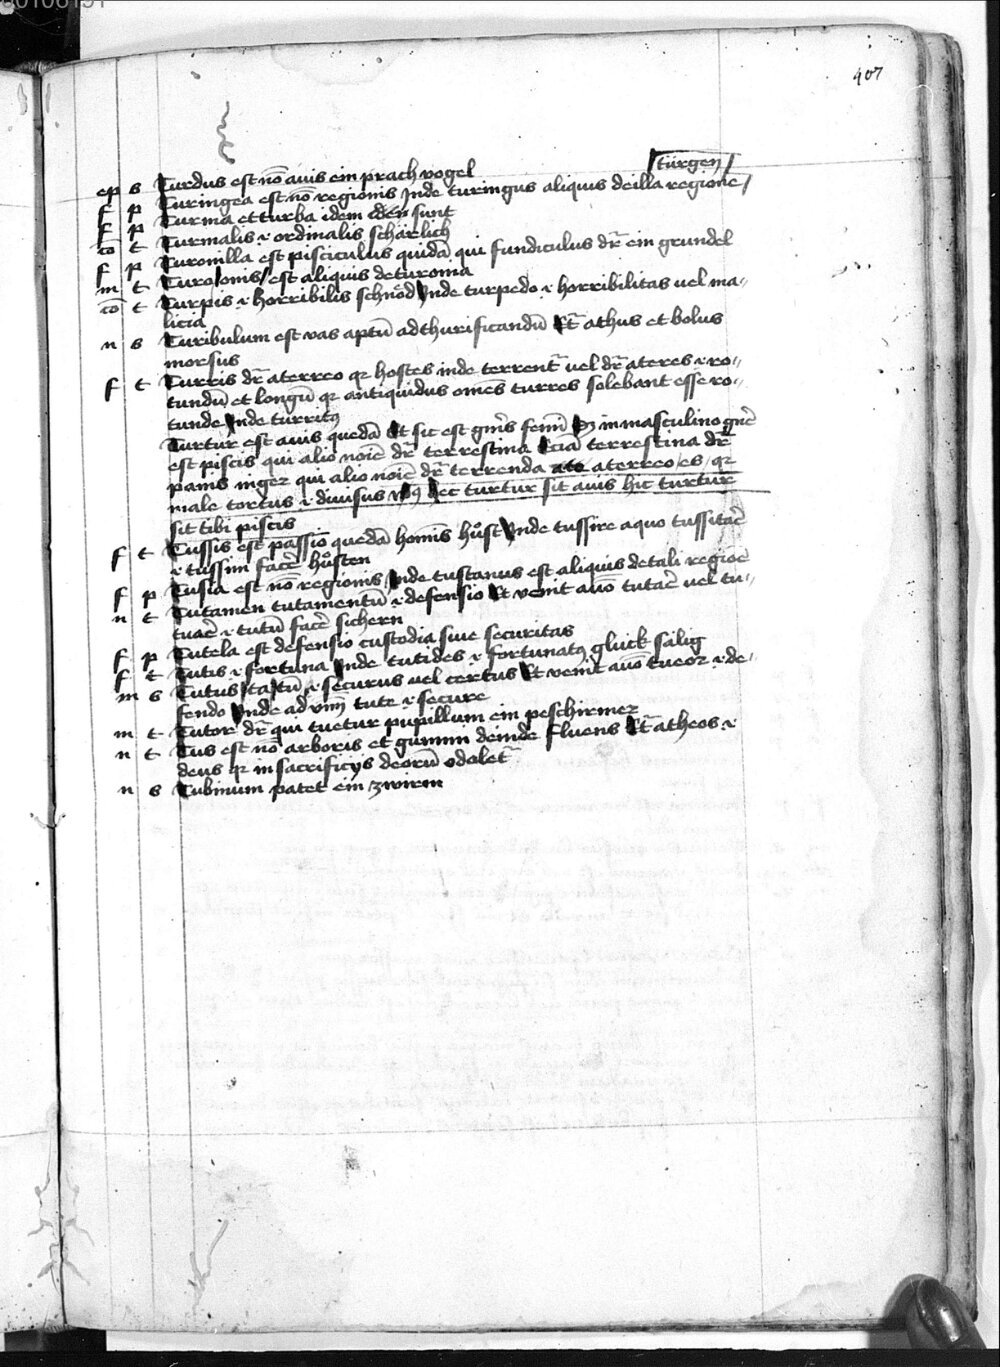 407
türgen
ep s Turdus est nō auis ein prach vogel
f p Turingea est nō regionis Inde turingus aliquis de illa regione
f p Turma et turba idem sunt
cō t Turmalis ordinalis schärlich
f p Turonilla est pisciculus quidā qui fundiculus dr̄ ein grundel
m t Turo onis est aliquis de turonia
cō t Turpis horribilis schnöd Inde turpedo horribilitas uel ma
licia
n s Turibulum est vas aptū ad thurificandū Et athus et bolus
morsus
f t Turris dr̄ a terreo qꝛ hostes inde terrentr̄ vel dr̄ a teres ro
tundū et longū qꝛ antiquidus om̄es turres solebant esse ro
tunde Inde turritꝰ
Turtur est auis quedā Et sic est gn̄is femī in masculino gn̄e
est piscis qui alio noīe dr̄ terrestina terrestina dr̄
panis niger qui alio noīe dr̄ terrenda a terreo es qꝛ
male tortus diuisus hec turtur sit auis hic turtur
sit tibi piscis
f t Tussis est passio quedā homīs hůst Inde tussire a quo tussitar̄
tussim facē hůsten
f p Tusia est nō regionis Inde tustanus est aliquis de tali regioē
n t Tutamen tutamentū defensio Et venit a tutar̄ vel tu
tuar̄ tutū facē sichern
f p Tutela est defensio custodia siue securitas
f t Tutis fortuna Inde tutides fortunatꝰ gluck sälig
m s Tutus ta tū securus uel certus Et venit a tueor de
fendo Inde aduīm tute secure
m t Tutor dr̄ qui tuetur pupillum ein peschirmer
n t Tus est nō arboris et gummi deinde fluens Et atheos
deus qꝛ in sacrificijs deorū odoletr̄
n s Tubinum patet ein zwirm